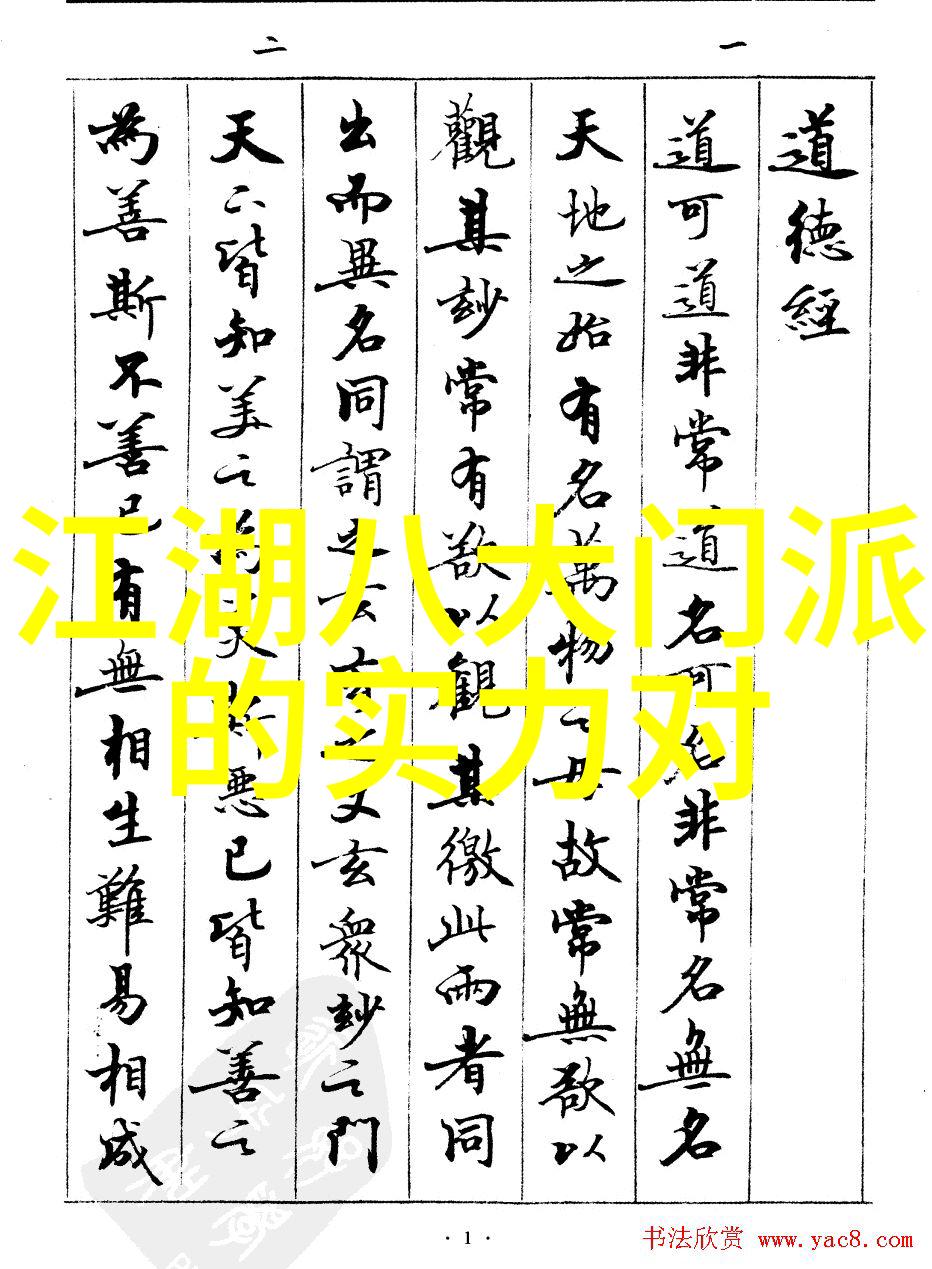 一
二
道徳經
道可道非常道名可名非常名無名
天地之始有名萬物之母故常無欲以
觀其玅常有欲以觀其徼此兩者同
出而異名同謂之玄玄之又玄衆玅之門
天下皆知美之為美斯惡已皆知善之
為善斯不善已有無相生難易相成
江湖八大门派
的实力对
· 1 ·
书法欣赏 www.yac8.com